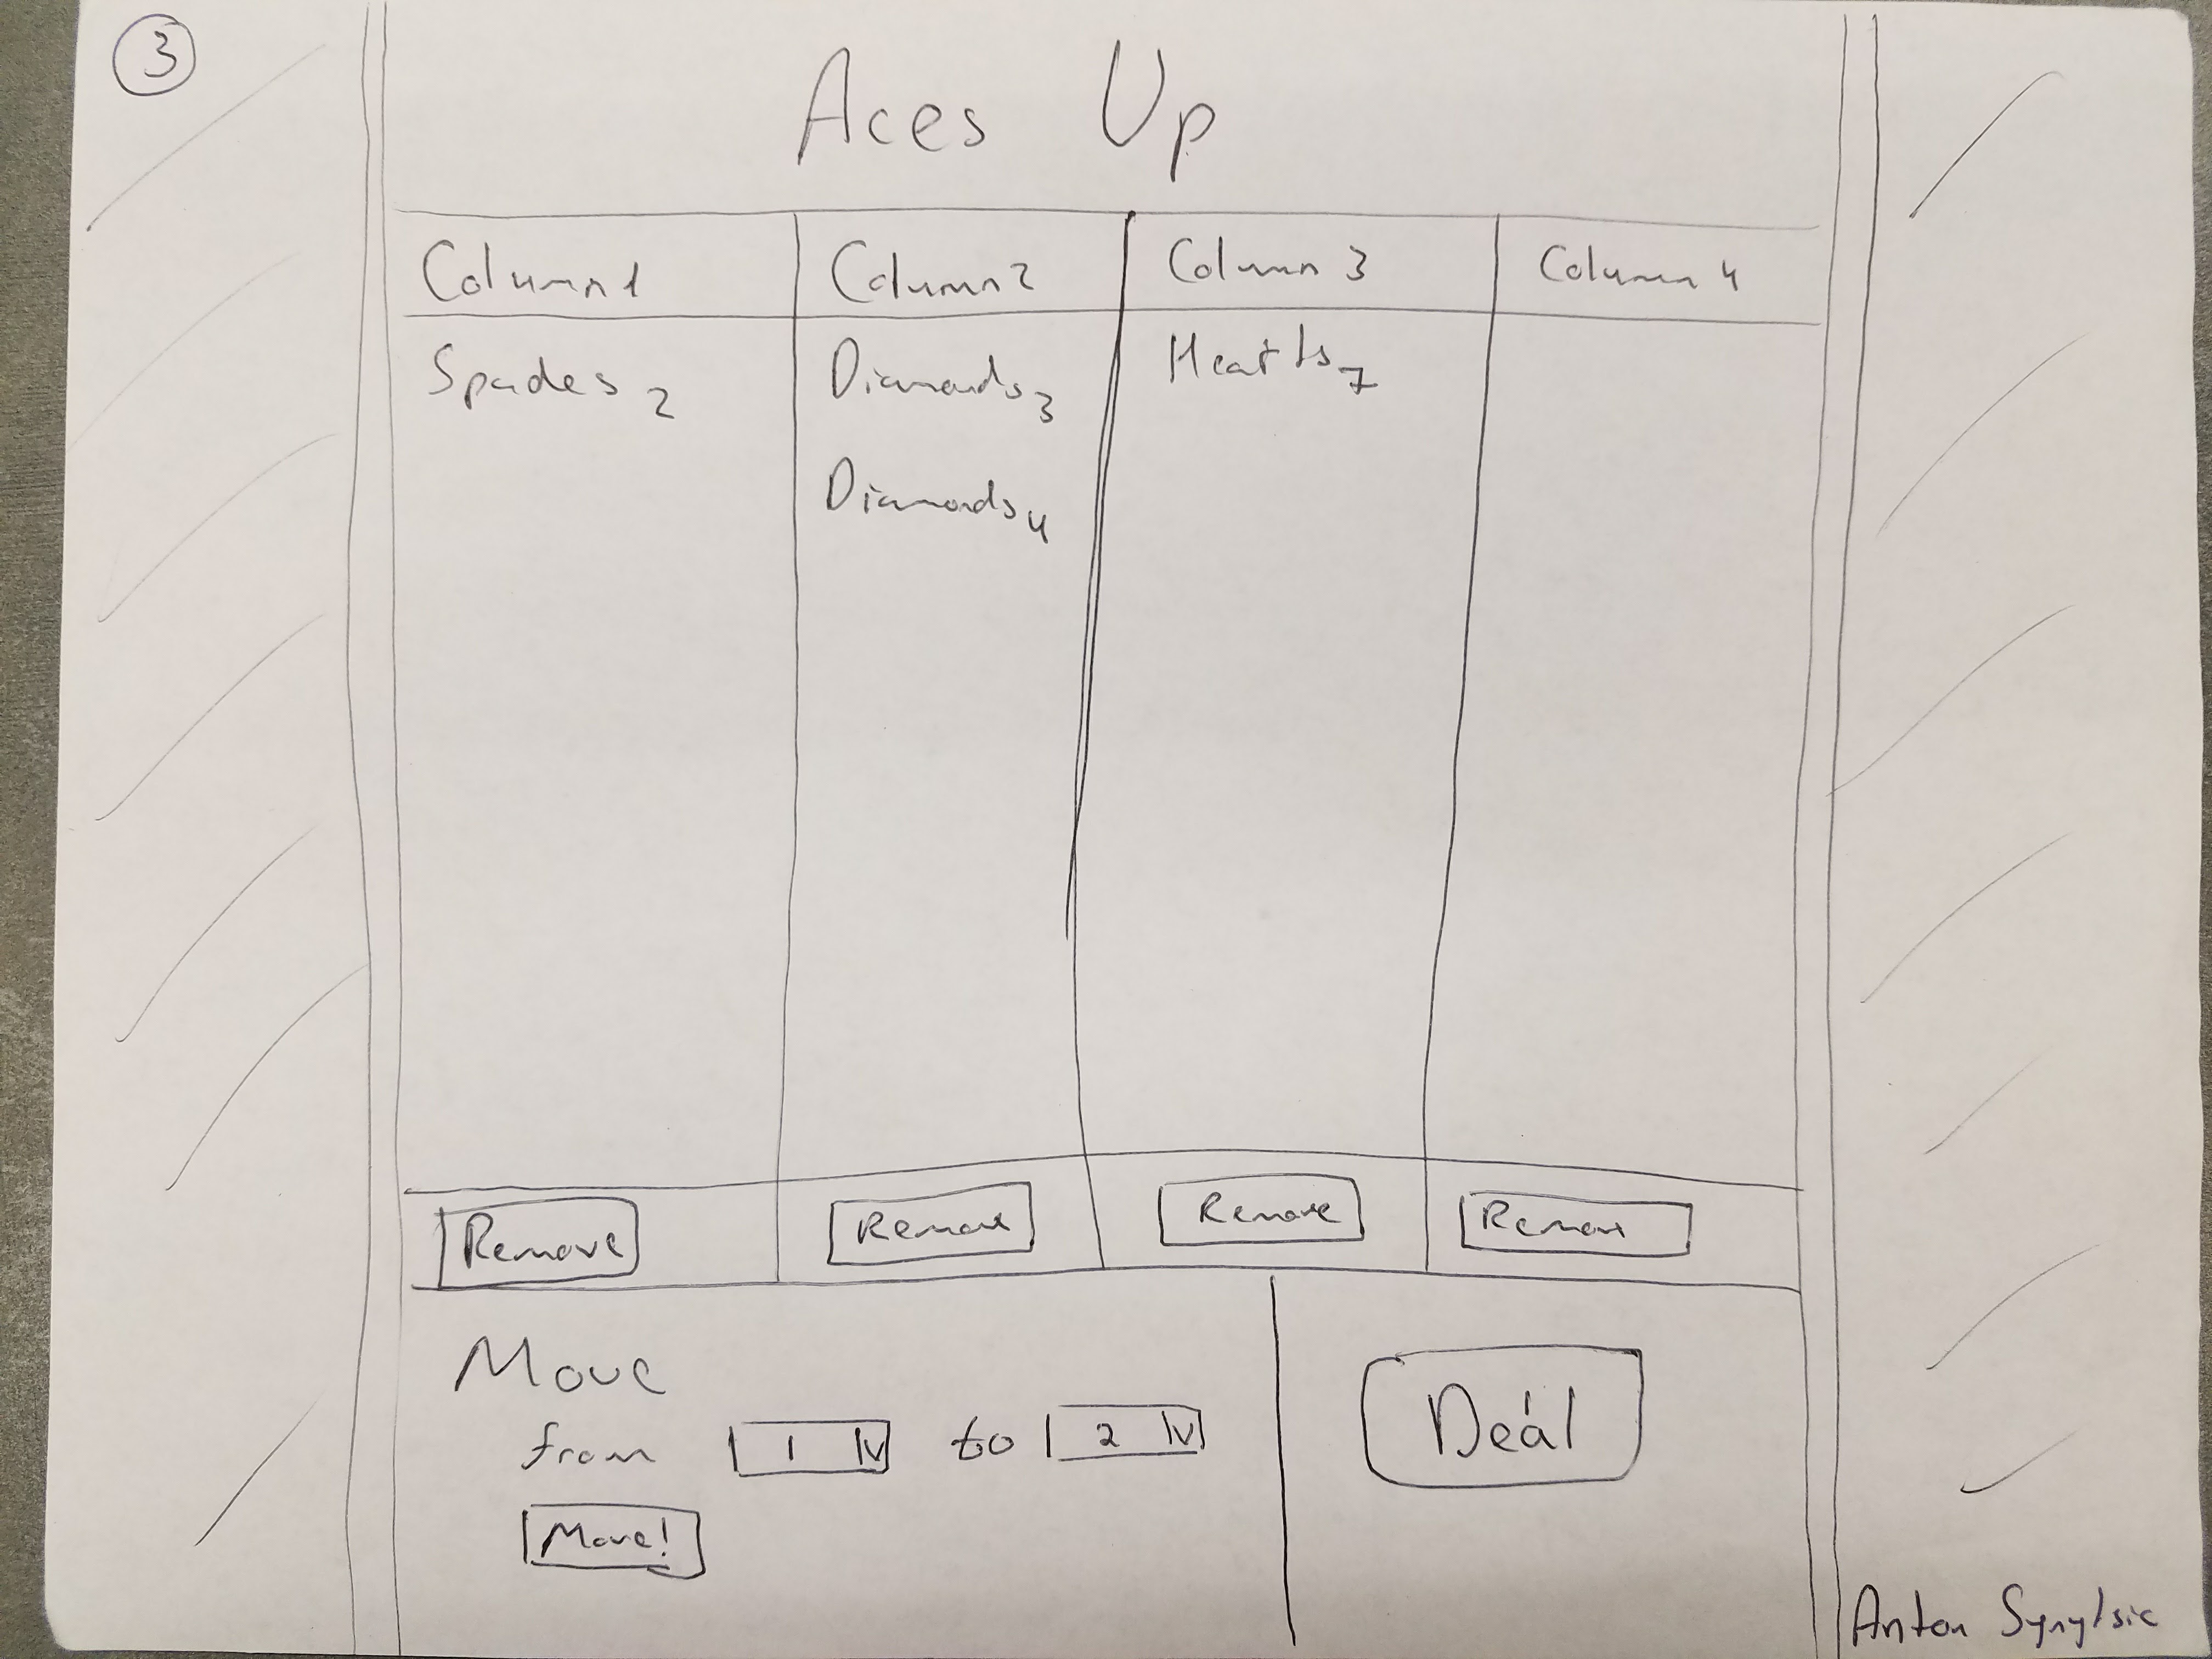 3
Aces Up
Column 1 Column 2 Column 3 Column 4
Spades 2 Diamonds 3 Hearts 7
Diamonds 4
Remove Remove Remove Remove
Move
from 1 to 2
Move!
Deal
Anton